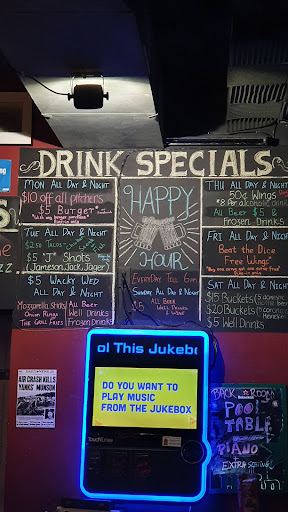 DRINK SPECIALS
MON ALL DAY & NIGHT
$10 off all pitchers
$5 Burger
TUE ALL DAY & NIGHT
$2.50 Tacos
$5 "J" Shots
(Jameson, Jack, Jager)
$5 WACKY WED
ALL DAY & NIGHT
Mozzarella Sticks
Onion Rings
All Beer
Well Drinks
Frozen Drinks
HAPPY
HOUR
EVERYDAY TILL
SUNDAY ALL DAY & NIGHT
ALL BEER
Well Drinks
THU ALL DAY & NIGHT
50¢ Wings
All Beer $5 &
Frozen Drinks
FRI ALL DAY & NIGHT
Beat the Dice
Free Wings
SAT ALL DAY & NIGHT
$15 Buckets
$20 Buckets
$5 Well Drinks
ol This Jukebo
DO YOU WANT TO
PLAY MUSIC
FROM THE JUKEBOX
TouchTunes
AIR CRASH KILLS
YANKS' MUNSON
BACK ROOM
POOL
TABLE
PIANO
EXTRA SEATING